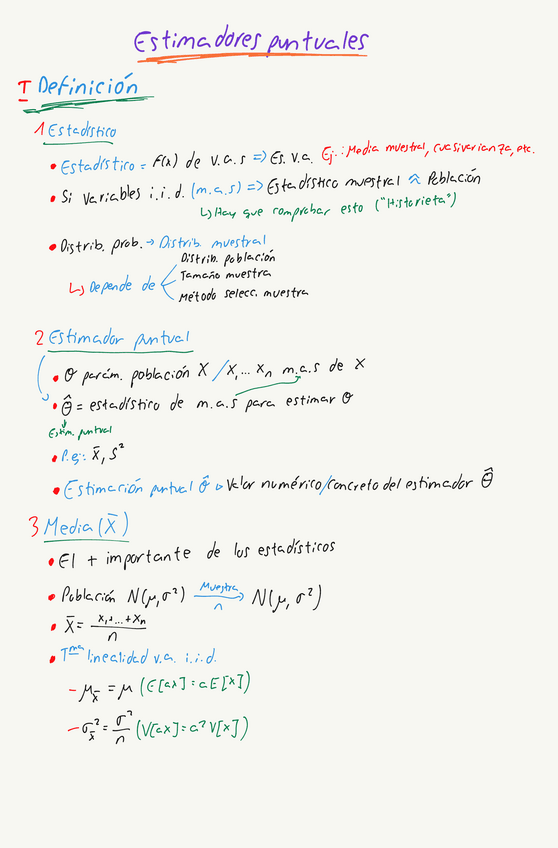 Estimadores puntuales
I Definición
1 Estadístico
• Estadístico = F(x) de v.a.s => Es. v.a. Ej.: Media muestral, cuasivarianza, etc.
• Si variables i.i.d. (m.a.s) => Estadístico muestral ≈ Población
↳ Hay que comprobar esto ("Historieta")
• Distrib. prob. → Distrib. muestral
↳ Depende de
Distrib. población
Tamaño muestra
Método selecc. muestra
2 Estimador puntual
• θ parám. población X / x₁ ... xₙ m.a.s de X
• θ̂ = estadístico de m.a.s para estimar θ
Estim. puntual
• P.ej: x̄, s²
• Estimación puntual θ̂ → Valor numérico/concreto del estimador θ̂
3 Media (x̄)
• El + importante de los estadísticos
• Población N(μ, σ²) Muestra n → N(μ, σ²)
• x̄ = (x₁ + ... + xₙ) / n
• Tᵐᵃ linealidad v.a. i.i.d.
- μx̄ = μ (E[ax] = aE[x])
- σx̄² = σ²/n (V[ax] = a² V[x])